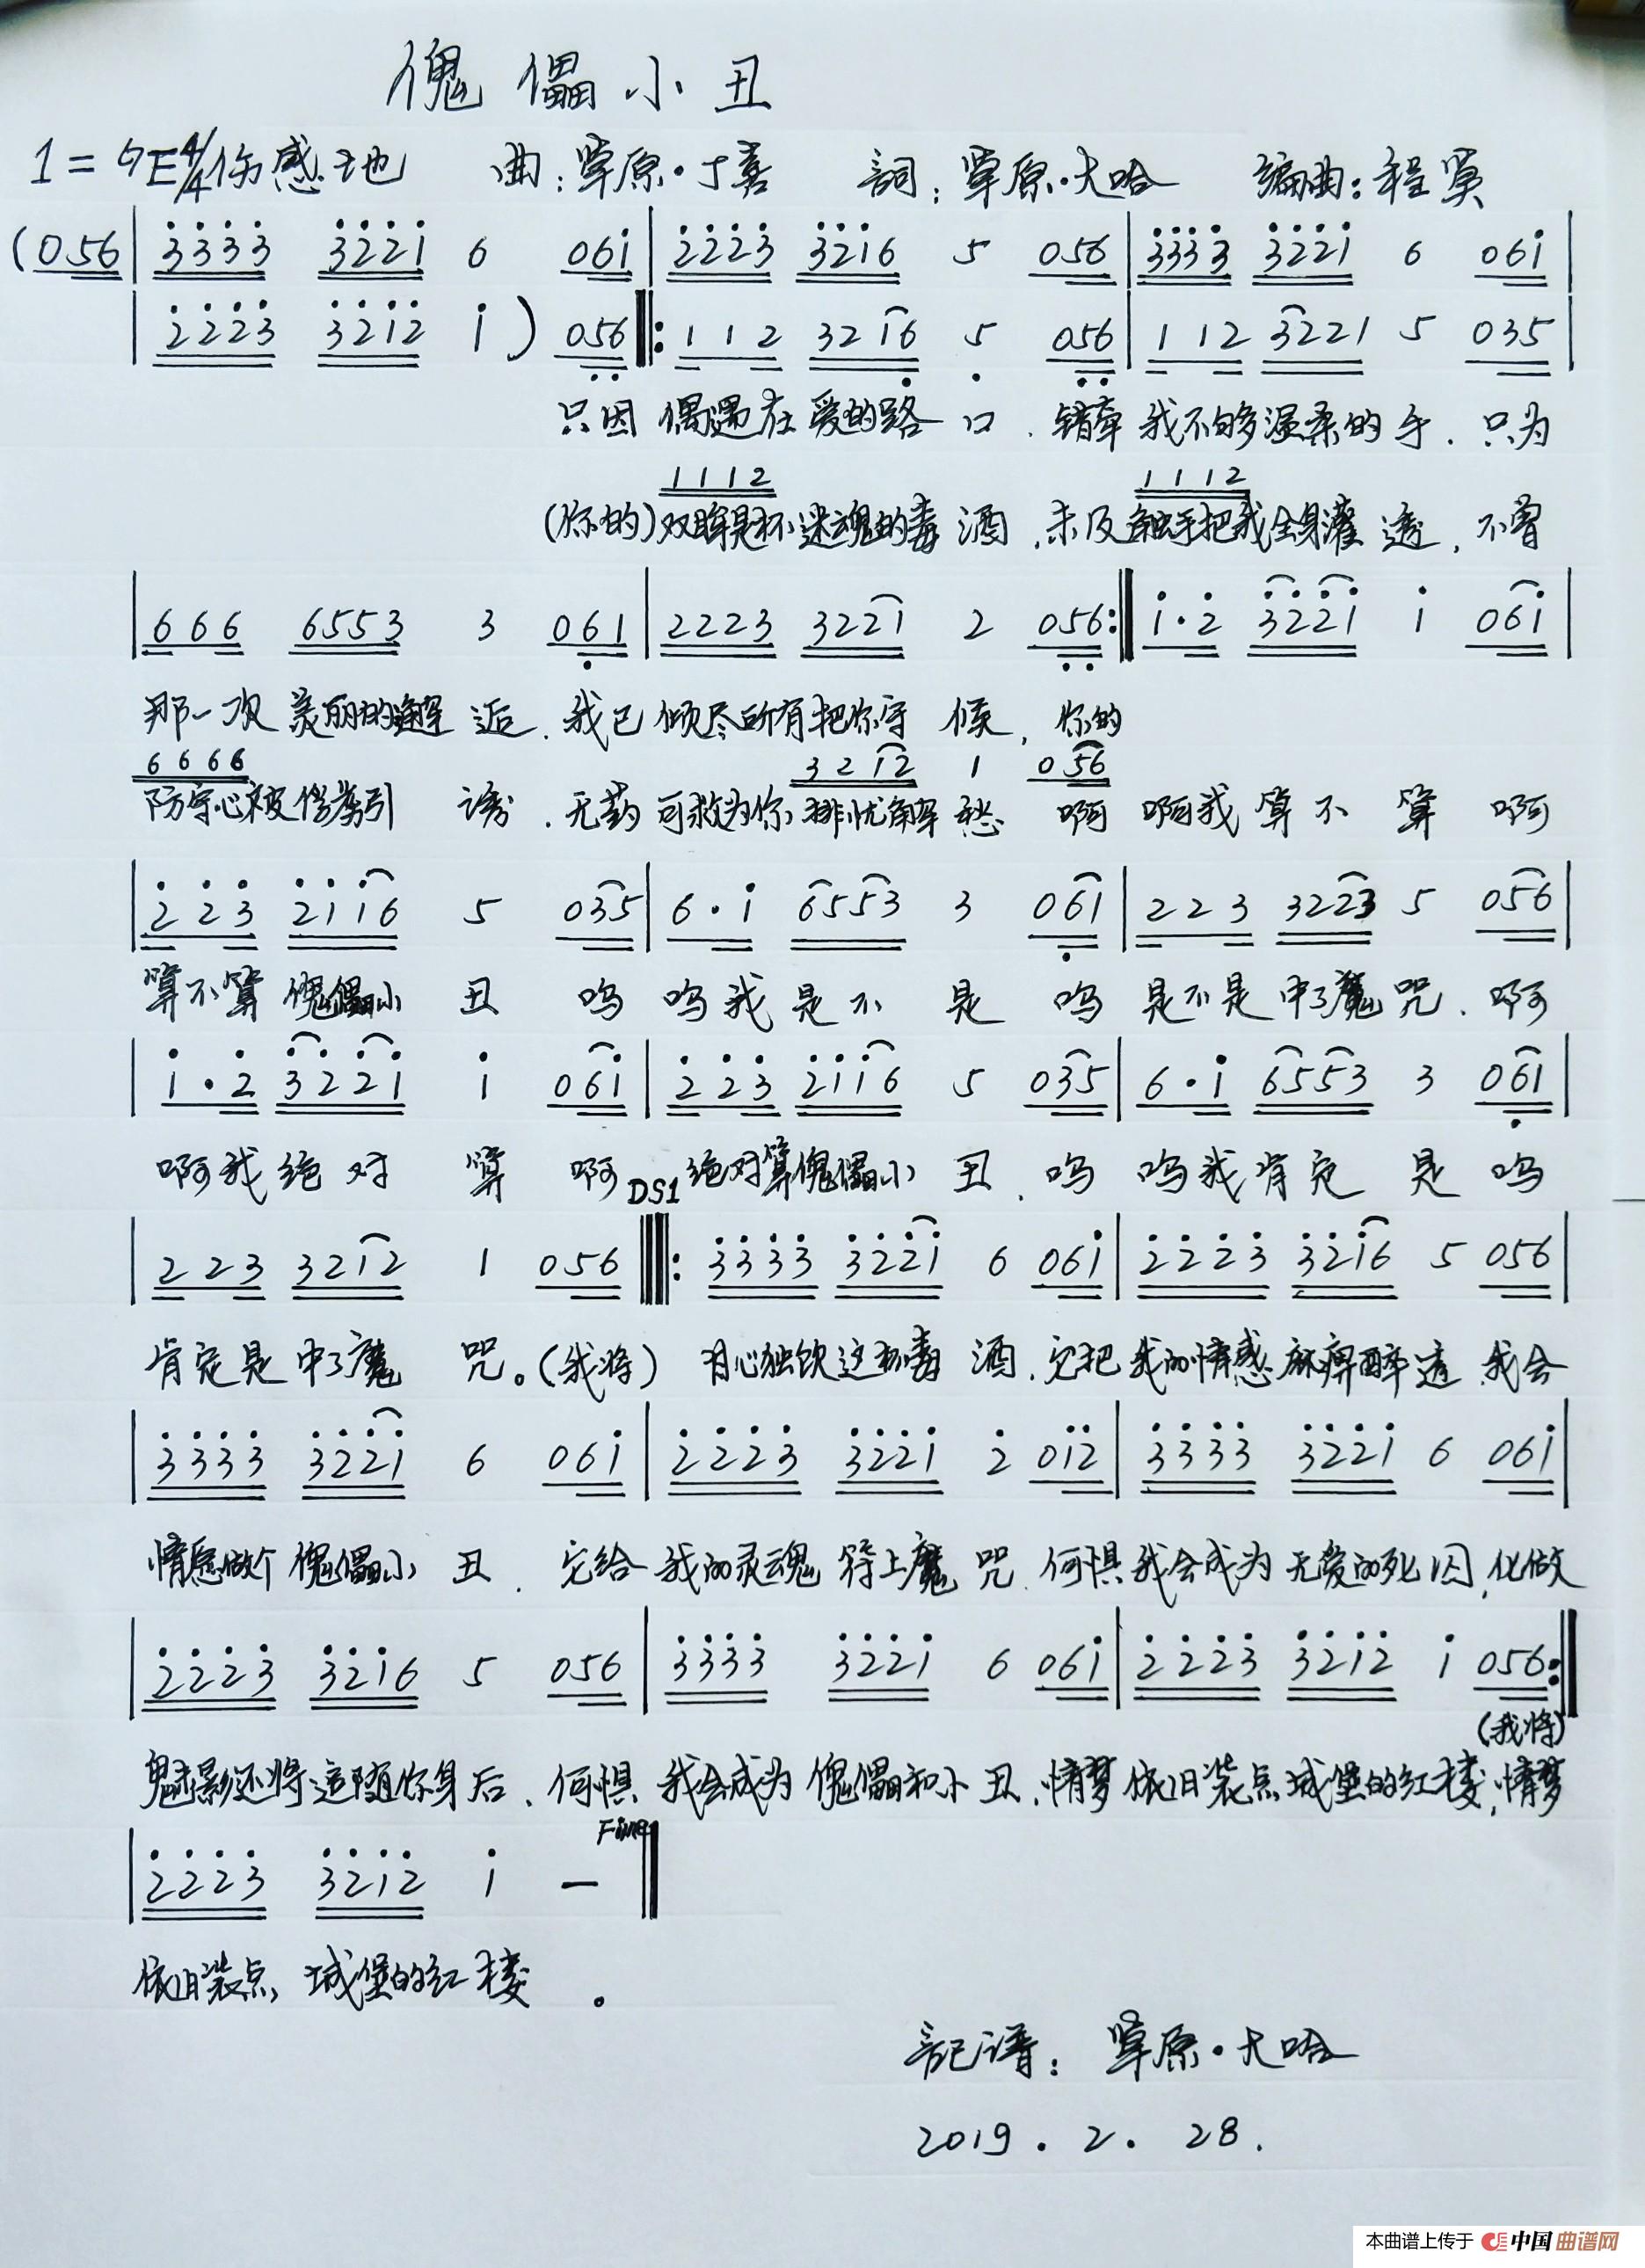 傀儡小丑
1=♭E4/4伤感地 曲:草原·丁喜 詞:草原·大哈 编曲:程莫
(056|3333 3221 6 061|2223 3216 5 056|3333 3221 6 061|
|2223 3212 1) 056‖:112 3216 5 056|112 3221 5 035|
只因 偶遇在爱的路口.错牵我不够温柔的手.只为
1112 1112
(你的)双眸是杯迷魂的毒酒,未及触手把我全身灌透,不曾
|666 6553 3 061|2223 3221 2 056:‖1·2 3221 1 061|
那一次美丽的邂逅.我已倾尽所有把你守候,你的
6666 3212 1 056
防守心被你勾引诱.无药可救为你排忧解愁 啊 啊我算不算 啊
|223 2116 5 035|6·1 6553 3 061|223 3223 5 056|
算不算傀儡小丑 呜 呜我是不是 呜 是不是中了魔咒.啊
|1·2 3221 1 061|223 2116 5 035|6·1 6553 3 061|
啊我绝对算 啊 绝对算傀儡小丑.呜 呜我肯定是 呜
DS1
|223 3212 1 056‖:3333 3221 6 061|2223 3216 5 056|
肯定是中了魔咒。(我将) 用心独饮这杯毒酒.它把我的情感麻痹醉透 我会
|3333 3221 6 061|2223 3221 2 012|3333 3221 6 061|
情愿做个傀儡小丑.它给我的灵魂符上魔咒.何惧我会成为无爱的死囚,化做
|2223 3216 5 056|3333 3221 6 061|2223 3212 1 056:‖
(我将)
魅影还将追随你身后.何惧我会成为傀儡和小丑.情梦依旧装点城堡的红楼,情梦
Fine
|2223 3212 1 —‖
依旧装点城堡的红楼。
記谱:草原·大哈
2019.2.28.
本曲谱上传于 中国曲谱网